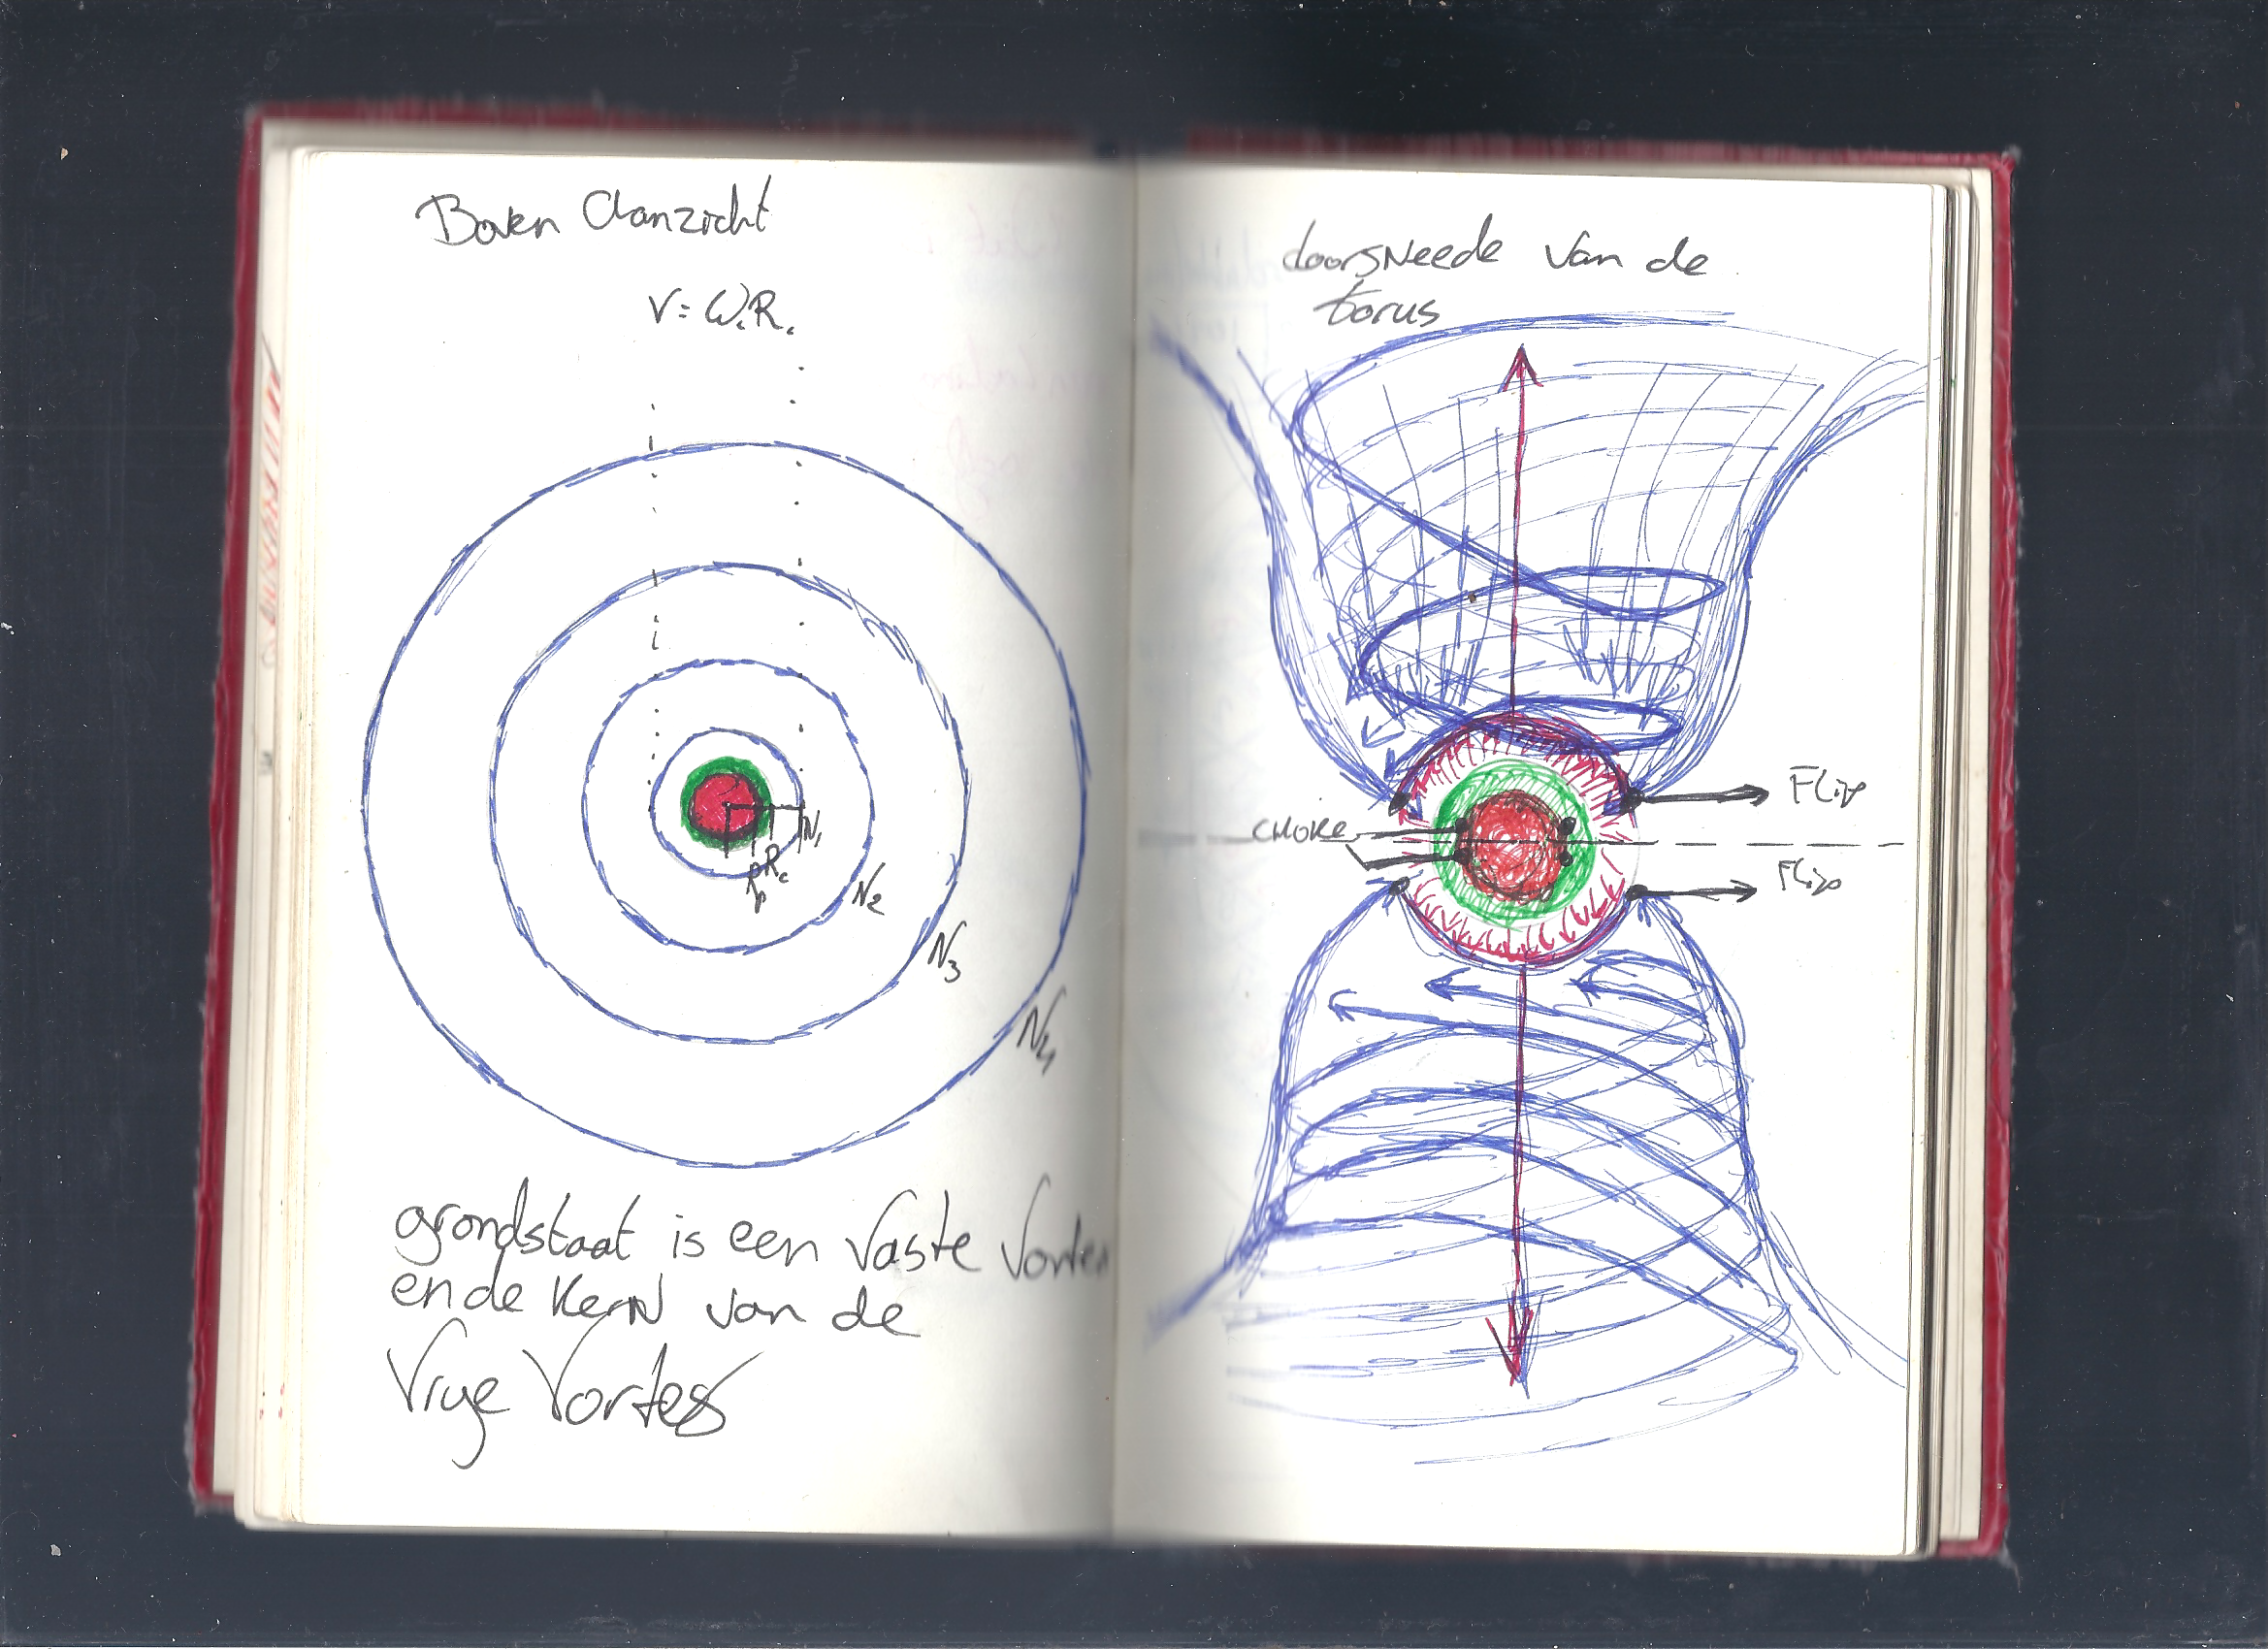 Boven Aanzicht
V = ω.R.
N1
Rc
Rp
N2
N3
N4
grondstaat is een vaste Vortex
en de kern van de
Vrye Vortex
doorsNeede van de
torus
CHOKE